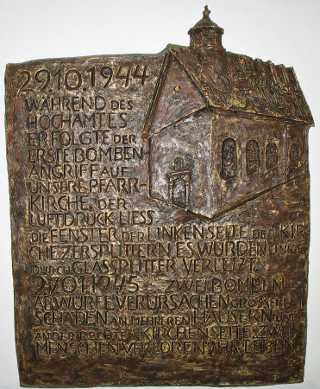 29.10.1944
WÄHREND DES
HOCHAMTES
ERFOLGTE DER
ERSTE BOMBEN-
ANGRIFF AUF
UNSERE PFARR-
KIRCHE. DER
LUFTDRUCK LIESS
DIE FENSTER DER LINKEN SEITE DER KIR
CHE ZERSPLITTERN. ES WURDEN
DURCH GLASSPLITTER VERLETZT.
21.01.1945 ZWEI BOMBEN
ABWÜRFE VERURSACHEN GROSSEN
SCHADEN AN MEHREREN HÄUSERN
KIRCHENSEITE. ZWEI
MENSCHEN VERLOREN IHR LEBEN